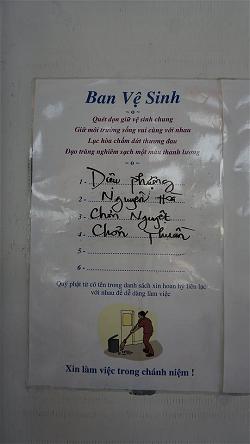 Ban Vệ Sinh
~o~
Quét dọn giữ vệ sinh chung
Giữ môi trường sống vui cùng với nhau
Lục hòa chấm dứt thương đau
Đạo tràng nghiêm sạch một màu thanh lương
~o~
1 - Diệu Phượng
2 - Nguyên Hòa
3 - Chơn Nguyệt
4 - Chơn Thuần
5 -
6 -
Quý phật tử có tên trong danh sách xin hoan hỷ liên lạc
với nhau để dễ dàng làm việc
Xin làm việc trong chánh niệm !